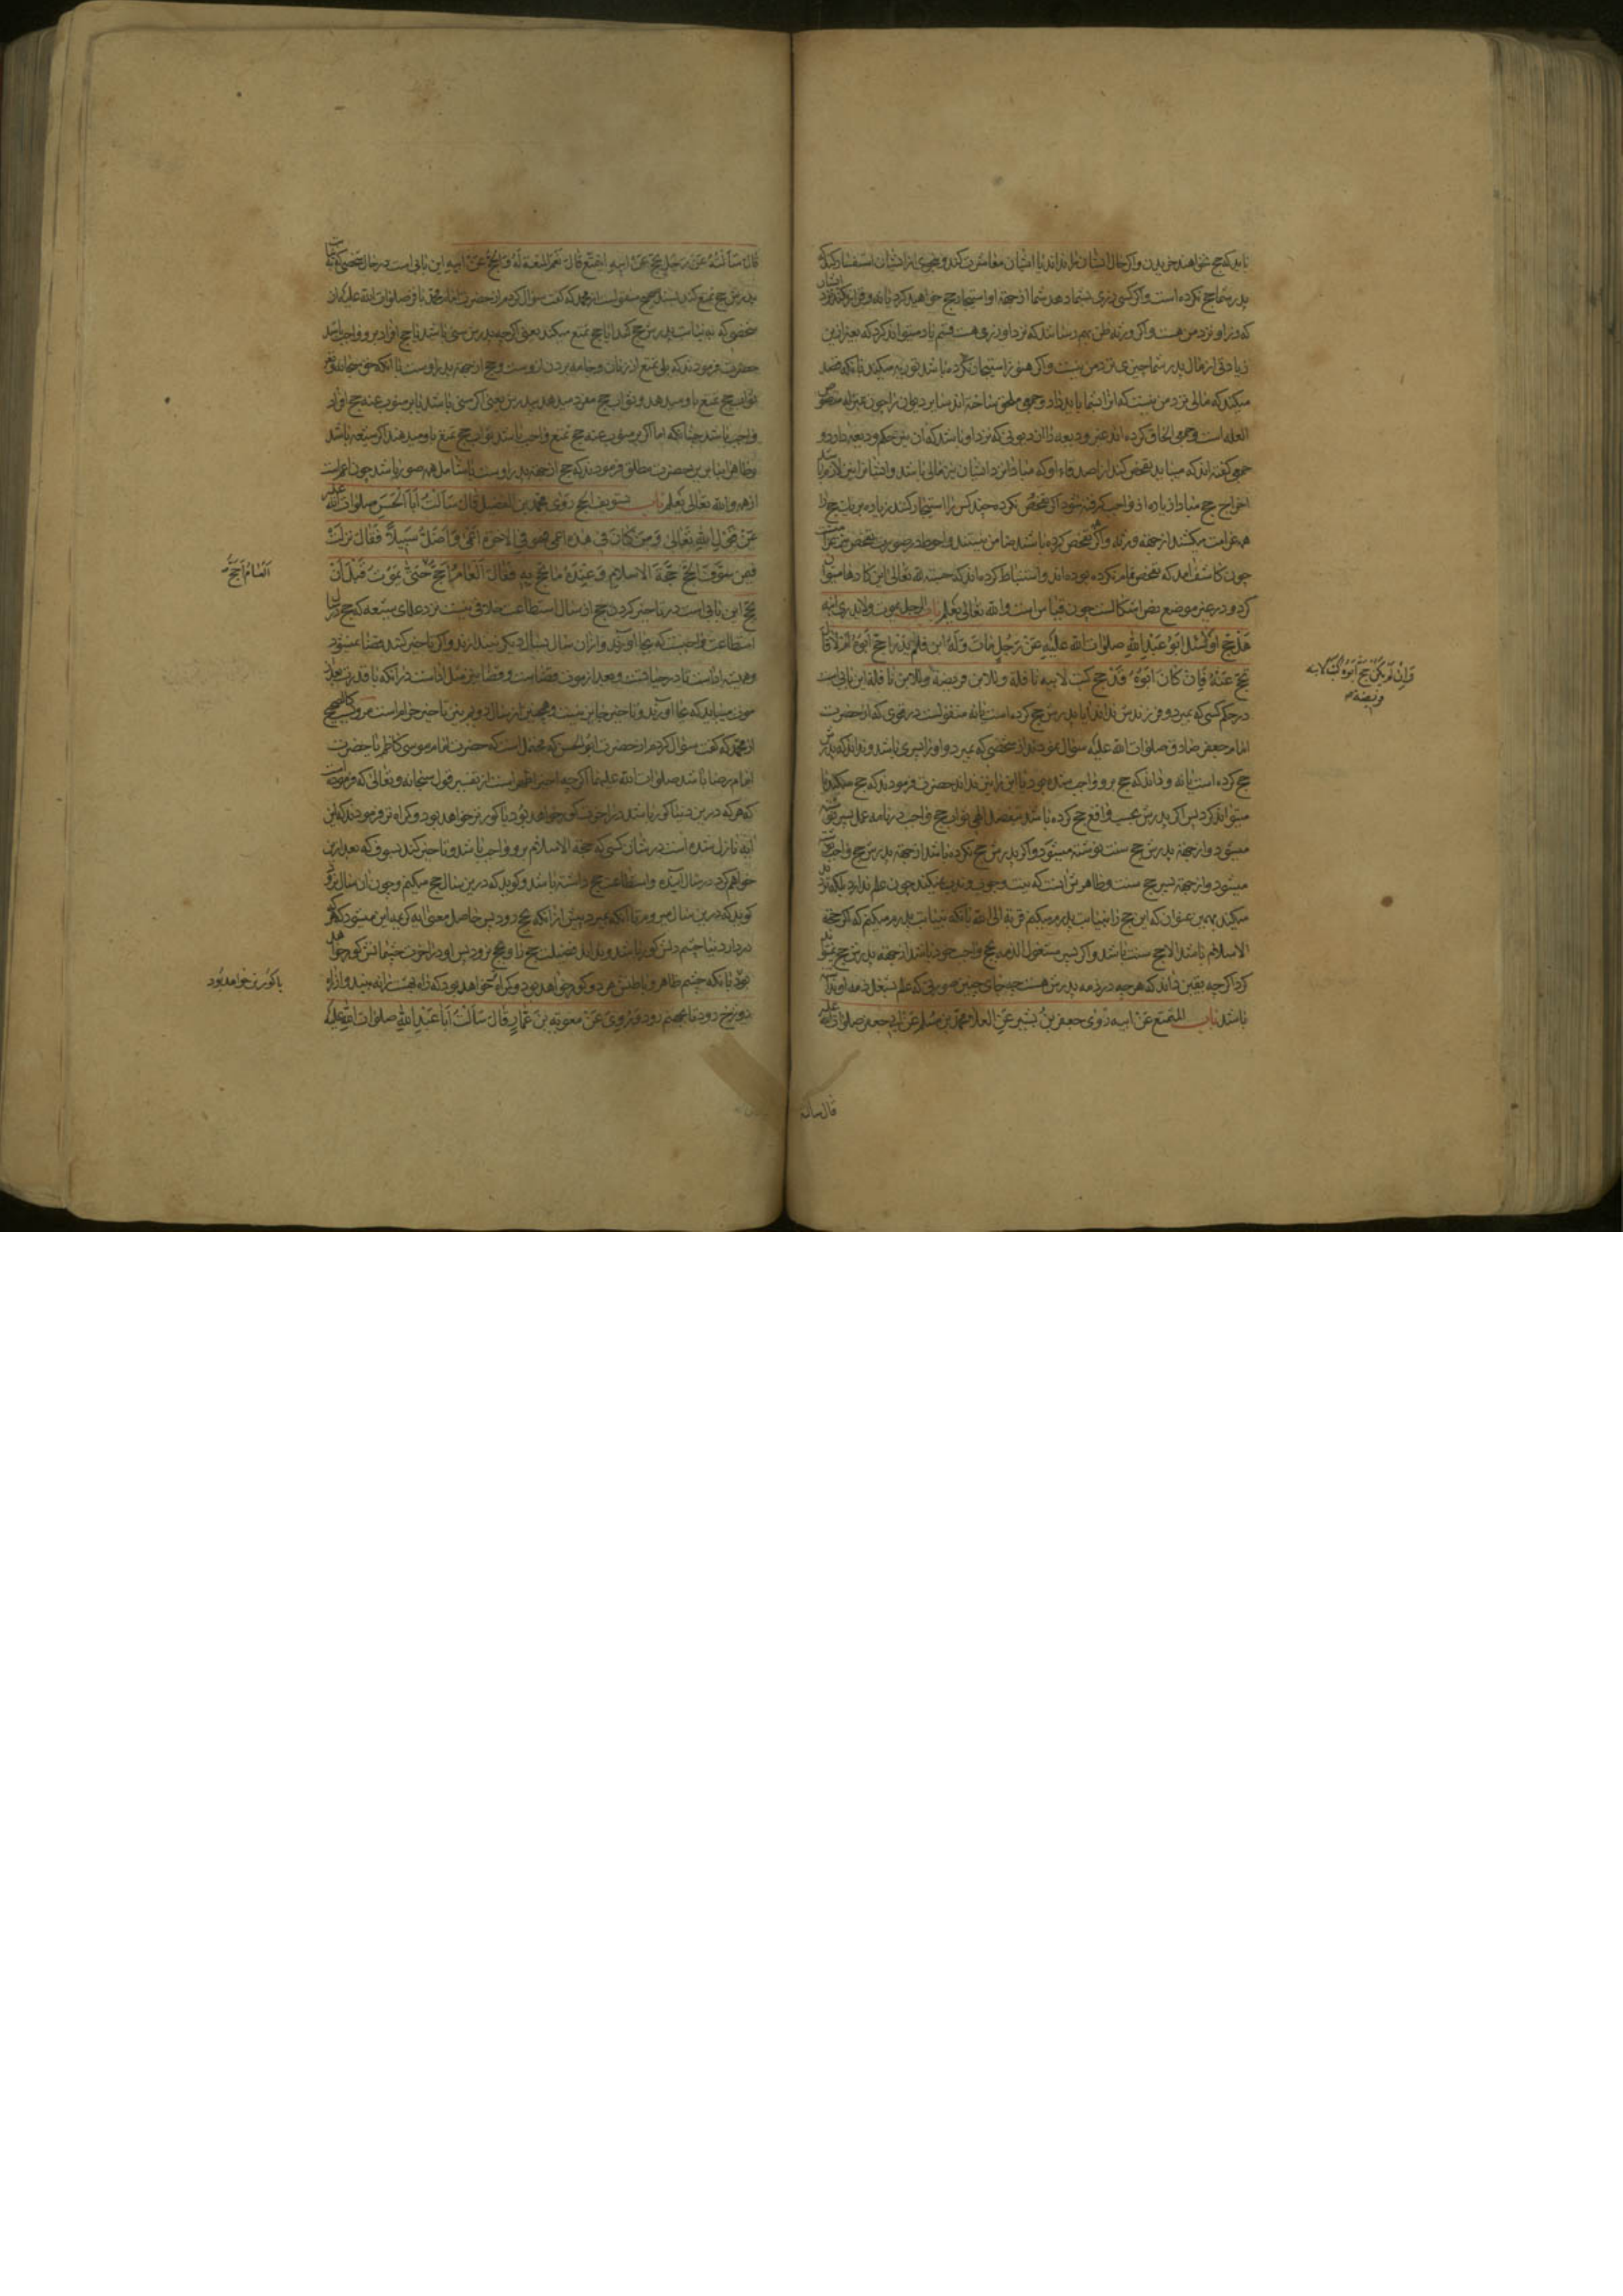 باید که حج خواهید خریدن و اگر حال ایشان را نداند با ایشان معاشرت کند و بنحوی از ایشان استفسار کند که
پدر شما حج نکرده است و اگر کسی زری بشما دهد شما از جهة او استیجار حج خواهید کرد یا نه و قرار کند نزد ایشان
که زر او نزد من هست و اگر ورثه ظن بهم رسانند که نزد او زری هست قسم یاد میتواند کرد که بغیر ازین
زیادتی از مال پدر شما چیزی نزد من نیست و اگر هنوز استیجار نکرده باشد توریه میکند یا آنکه قصد
میکند که مالی نزد من نیست که آنرا بشما باید داد و جمعی ملحق ساخته اند سایر دیون را چون عبرة منصوص
العله است و جمعی الحاق کرده اند غیر ودیعه را از دیونی که نزد او باشد که آن نیز حکم ودیعه دارد و
جمعی گفته اند که میباید تفحص کند از اصدقاء او که مبادا نزد ایشان نیز مالی باشد و ایشان نیز این را دانسته
اخراج حج مبادا زیاده از واجب گرفته شود اگر تفحص نکرده چند کس را استیجار کنند زیاده بر یک حج را
همه غرامت میکشند از جهة ورثه و اگر تفحص کرده باشند ضامن نیستند و احوط در صورت تفحص نیز غرامت است
چون کاشف آمد که تفحص تمام نکرده بوده اند و استنباط کرده اند که حسبة لله تعالی این کارها میتوان
کرد و در غیر موضع نص اشکالست چون قیاس است والله تعالی یعلم باب الرجل یموت ولا یدری ابنه
هل حج او لا سئل ابو عبد الله صلوات الله علیه عن رجل مات وله ابن فلم یدر احج ابوه ام لا قال
یحج عنه فان کان ابوه قد حج کتب لابیه نافلة وللابن فریضة وللابن نافلة این بابی است
وان لم یکن حج ابوه کتب لابیه
فریضة
در حکم کسی که بمیرد و فرزندش نداند آیا پدرش حج کرده است یا نه منقولست در قوی که از حضرت
امام جعفر صادق صلوات الله علیه سؤال نمودند از شخصی که بمیرد و او را پسری باشد و نداند که پدرش
حج کرده است یا نه و داند که حج برو واجب شده بود یا این را نیز نداند حضرت فرمودند که حج میکند یا
میتواند کرد پس اگر پدرش بحسب واقع حج کرده باشد بتفضل الهی ثواب حج واجب در نامه عمل پسر نوشته
میشود و از جهة پدرش حج سنت نوشته میشود و اگر پدرش حج نکرده باشد از جهة پدرش حج واجب
میشود و از جهة پسر حج سنت و ظاهرش آنست که نیت وجوب و ندب نمیکند چون علم ندارد بلکه
میکند بهمین عنوان که این حج را بنیابت پدرم میکنم قربة الی الله یا آنکه بنیابت پدرم میکنم که اگر حجة
الاسلام باشد والا حج سنت باشد و اگر پسر مشغول الذمه بحج واجب خود باشد از جهة پدرش حج نمیتواند
کرد اگر چه یقین داند که هر چه در ذمه پدرش هست چه جای چنین صورتی که علم بشغل ذمه او ندارد
باشد باب المتمتع عن ابیه روی جعفر بن بشیر عن العلا عن محمد بن مسلم عن ابی جعفر صلوات الله علیه
قال سالته
قال سألته عن رجل یحج عن ابیه ایتمتع قال نعم المتعة له والحج عن ابیه این بابی است در حال شخصی که بنیابت
پدرش حج تمتع کند بسند صحیح منقولست از محمد که گفت سؤال کردم از حضرت امام محمد باقر صلوات الله علیه از
شخصی که به نیابت پدرش حج کند آیا حج تمتع میکند یعنی اگر چه پدرش سنی باشد یا حج افراد برو واجب باشد
حضرت فرمودند که بلی تمتع از زنان و جامه بردن ازوست و حج از جهة پدر اوست یا آنکه حق سبحانه و تعالی
ثواب حج تمتع باو میدهد و ثواب حج مفرد میدهد بپدرش یعنی اگر سنی باشد یا بر منوب عنه حج افراد
واجب باشد چنانکه اما اگر بر منوب عنه حج تمتع واجب باشد ثواب حج تمتع باو میدهند اگر شیعه باشد
و ظاهرا بنابرین حضرت مطلق فرمودند که حج از جهة پدر اوست تا شامل همه صور باشد چون اعم است
از همه والله تعالی یعلم باب تسویف الحج روی محمد بن الفضیل قال سألت ابا الحسن صلوات الله علیه
عن قول الله تعالی ومن کان فی هذه اعمی فهو فی الاخرة اعمی واضل سبیلا فقال نزلت
فیمن سوف الحج حجة الاسلام وعنده ما یحج به فقال العام احج حتی یموت قبل ان
العام احج
یحج این بابی است در تأخیر کردن حج از سال استطاعت خلافی نیست نزد علمای شیعه که حج در سال
استطاعت واجبست که بجا آورند و از آن سال بسال دیگر نیندازند و اگر تأخیر کند قضا نمیشود
و همیشه اداست تا در حیاتست و بعد از موت قضاست و قضا نیز مثل اداست در آنکه با قدرت بعد از
موت میباید که بجا آورند و تأخیر جایز نیست و همچنین از سال دویم نیز تأخیر حرام است مرویست کالصحیح
از محمد که گفت سؤال کردم از حضرت ابو الحسن که محتمل است که حضرت امام موسی کاظم یا حضرت
امام رضا باشد صلوات الله علیهما اگر چه اخیر اظهر است از تفسیر قول سبحانه و تعالی که فرموده است
که هر که درین دنیا کور باشد در آخرت کور خواهد بود یا کورتر خواهد بود و گمراه تر فرمودند که این
آیه نازل شده است در شان کسی که حجة الاسلام برو واجب باشد و تأخیر کند بسوف که بعد ازین
خواهم کرد در سال آینده و استطاعت حج داشته باشد و گوید که درین سال حج میکنم و چون آن سال نرود
گوید که درین سال میروم تا آنکه بمیرد پیش از آنکه بحج رود پس حاصل معنی آیه کریمه این میشود که هر که
در دار دنیا چشم دلش کور باشد و نداند فضیلت حج را و بحج نرود پس او در آخرت چشمانش کور خواهد
بود یا آنکه چشم ظاهر و باطنش هر دو کور خواهد بود و گمراه خواهد بود که راه بهشت را نه بیند و از راه
یا کورتر خواهد بود
دوزخ رود تا بجهنم رود وروی عن معویة بن عمار قال سألت ابا عبد الله صلوات الله علیه